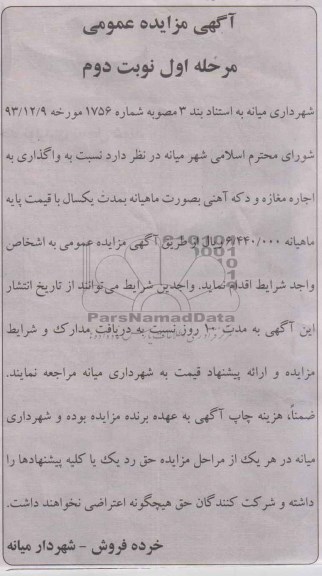 آگهی مزایده عمومی
مرحله اول نوبت دوم
شهرداری میانه به استناد بند ۳ مصوبه شماره ۱۷۵۶ مورخه ۹۳/۱۲/۹
شورای محترم اسلامی شهر میانه در نظر دارد نسبت به واگذاری به
اجاره مغازه و دکه آهنی بصورت ماهیانه بمدت یکسال با قیمت پایه
ماهیانه ۶/۴۴۰/۰۰۰ ریال از طریق آگهی مزایده عمومی به اشخاص
واجد شرایط اقدام نماید. واجدین شرایط می‌توانند از تاریخ انتشار
ParsNamadData
این آگهی به مدت ۱۰ روز نسبت به دریافت مدارک و شرایط
مزایده و ارائه پیشنهاد قیمت به شهرداری میانه مراجعه نمایند.
ضمناً، هزینه چاپ آگهی به عهده برنده مزایده بوده و شهرداری
میانه در هر یک از مراحل مزایده حق رد یک یا کلیه پیشنهادها را
داشته و شرکت کنندگان حق هیچگونه اعتراضی نخواهند داشت.
خرده فروش - شهردار میانه